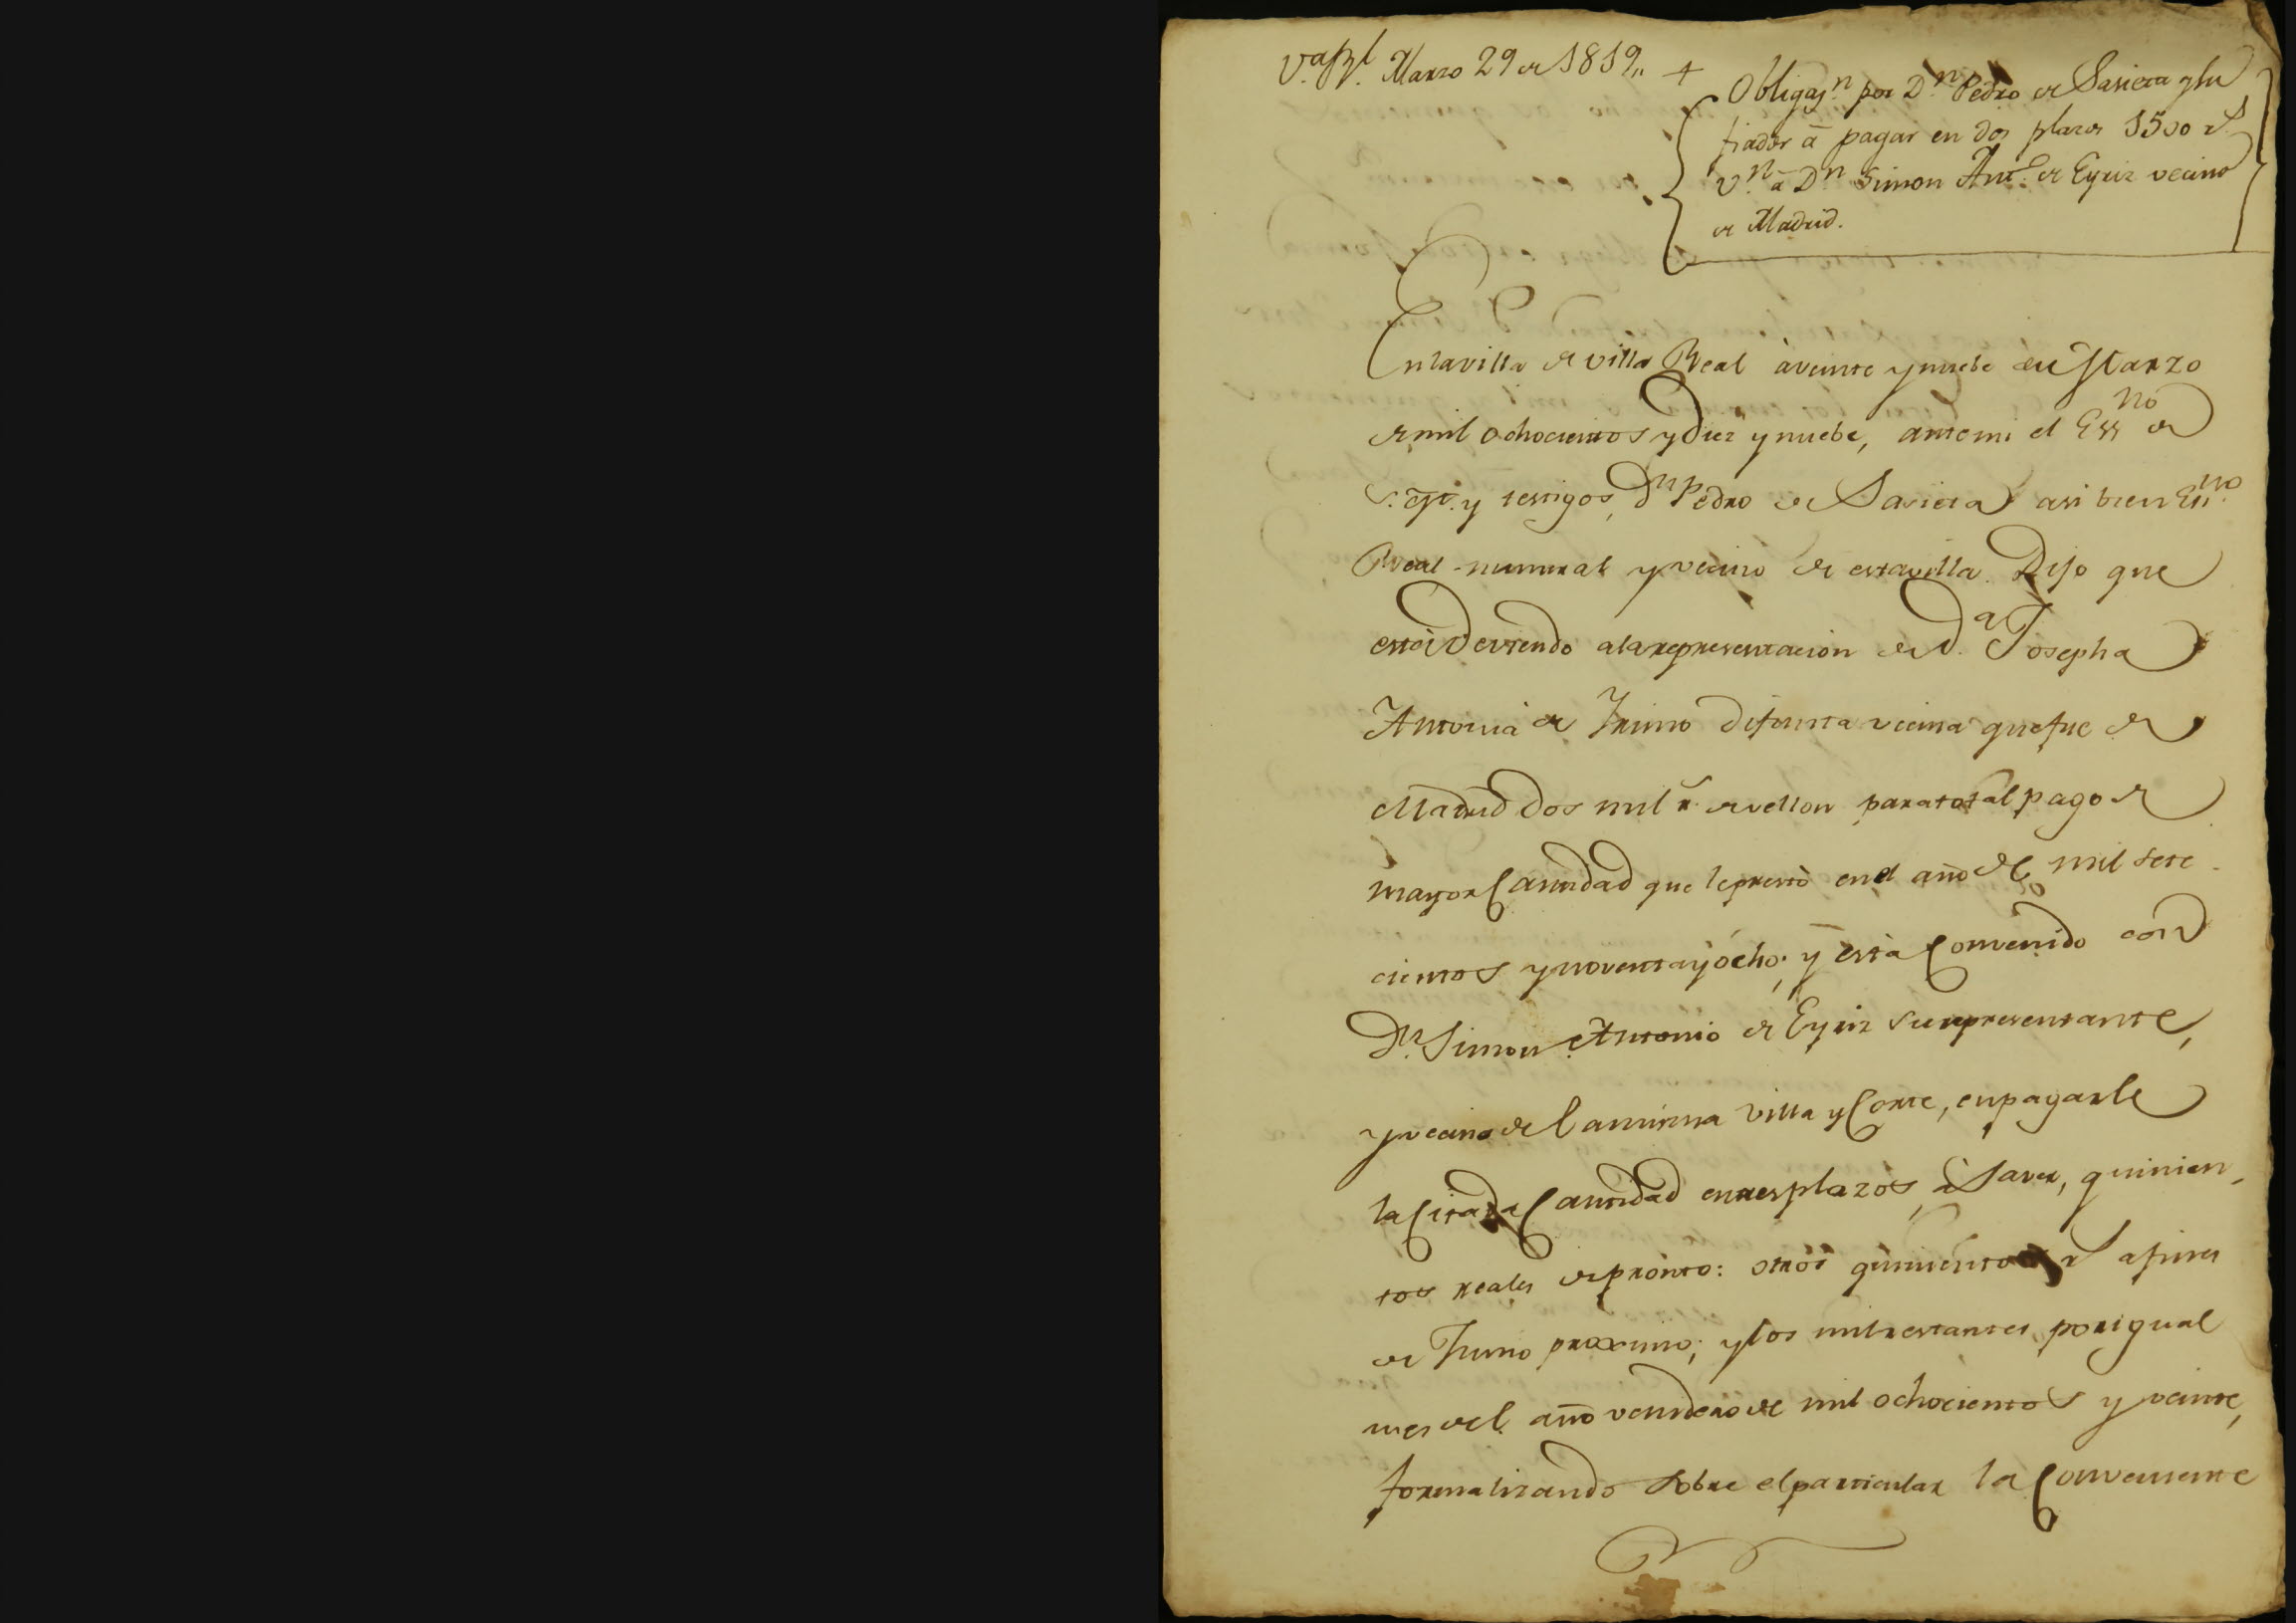 V.ª R.l Marzo 29 de 1819,, +
Obligaz.n por D.n Pedro de Sasieta y su
fiador à pagar en dos plazos 1500 r.s
v.n à D.n Simon Ant.º de Eguiz vecino
de Madrid.
En la villa de villa Real à veinte y nuebe de Marzo
de mil ochocientos y Diez y nuebe, ante mi el Ess.no de
S. M. y testigos, D.n Pedro de Sasieta asi bien Ess.no
Real numeral y vecino de esta villa Dijo que
está Deviendo a la representacion de D.a Josepha
Antonia de difunta vecina que fue de
Madrid Dos mil r.s de vellon para total pago de
mayor Cantidad que le prestò en el año de mil sete
cientos y noventa y ocho; y està Convenido con
D.n Simon Antonio de Eguiz su representante,
y vecino de la misma Villa y Corte, en pagarle
la Citada Cantidad en tres plazos, à Saver, quinien,
tos reales de pronto: otros quinientos r.s a fines
de Junio proximo; y los mil restantes por igual
mes del año venidero de mil ochocientos y veinte,
formalizando sobre el particular la Conveniente